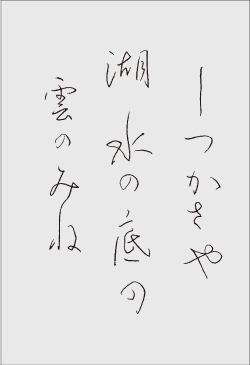 しつかさや
湖水の底の
雲のみね